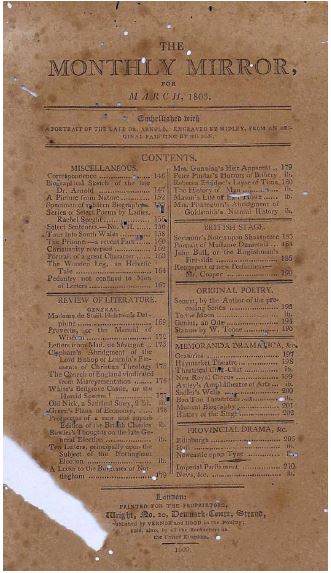 THE
MONTHLY MIRROR,
FOR
MARCH, 1803.
Embellished with
A PORTRAIT OF THE LATE DR. ARNOLD, ENGRAVED BY RIDLEY, FROM AN ORI-
GINAL PAINTING BY
CONTENTS.
MISCELLANEOUS.
Correspondence 146
Biographical Sketch of the late
Dr. Arnold 147
A Picture from Nature 152
Specimens of
Series of Select Poems by Ladies,
155
Select Sentences—No. VII. 156
Tour into South Wales 158
The Prisons—a recent Fact 160
Christianity revived 162
Portrait of a great Character 163
The Wooden Leg, an Helvetic
Tale 164
Pedantry not confined to Men
of Letters 167
REVIEW OF LITERATURE.
GENERAL.
Madame de Stael Holstein's Del-
phine 169
Proverbs, or the Manual of
Wisdom 172
Letters from Mad. de Sévigné 173
Clapham's Abridgment of the
Lord Bishop of Lincoln's Ele-
ments of Christian Theology 175
The Church of England vindicated
from Misrepresentation 176
White's Religious Castle, or the
Old Nick, a Satirical Story, 2 Ed.
Green's Plans of Economy, 178
Prospectus of a new and superb
Edition of the British Classics ib.
Bowles's Thoughts on the late Ge-
neral Election ib.
Ten Letters, principally upon the
Subject of the Nottingham
Election ib.
A Letter to the Burgesses of Not-
tingham 179
Mrs. Gunning's Heir Apparent 179
Peter Pindar's Horrors of Bribery ib.
Rebecca Edridge's Lapse of Time 180
The History of
Mason's Life of ib.
Mrs. Pilkington's Abridgment of
Goldsmith's Natural History ib.
BRITISH STAGE.
Seymour's Notes upon Shakespeare 183
Portrait of Madame Dumesnil 184
John Bull, or the Englishman's
Fire-side 185
Retrospect of new Performers—
Mr. Cooper 190
ORIGINAL POETRY.
Sonnet, by the Author of the pre-
ceding Series 195
To the Moon ib.
Genius, an Ode 194
Stanzas by W. 196
MEMORANDA DRAMATICA, &c.
Oratorios 197
Haymarket Theatre 198
Theatrical Chit-Chat ib.
New Royal Circus 199
Astley's Amphitheatre of Arts ib.
Sadler's Wells 200
201
Musical Biography 201
History of the 202
PROVINCIAL DRAMA, &c.
Edinburgh 205
Newcastle upon Tyne
Imperial Parliament 210
News, &c. ib.
London:
PRINTED FOR THE PROPRIETORS,
Wright, No. 20, Denmark-Court, Strand,
Published by VERNOR and HOOD in the Poultry;
sold, also, by all the Booksellers in
the United Kingdom.